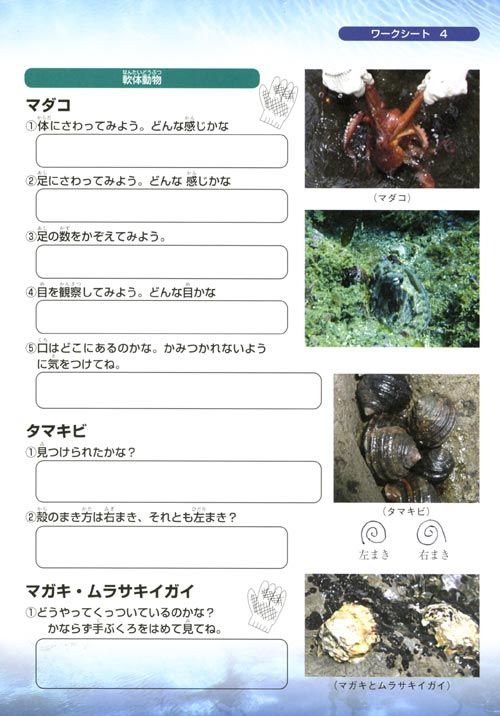 ワークシート 4
軟体動物
なんたいどうぶつ
マダコ
①体にさわってみよう。どんな感じかな
②足にさわってみよう。どんな 感じかな
③足の数をかぞえてみよう。
④目を観察してみよう。どんな目かな
⑤口はどこにあるのかな。かみつかれないよう
に気をつけてね。
(マダコ)
タマキビ
①見つけられたかな？
②殻のまき方は右まき、それとも左まき？
(タマキビ)
左まき 右まき
マガキ・ムラサキイガイ
①どうやってくっついているのかな？
かならず手ぶくろをはめて見てね。
(マガキとムラサキイガイ)